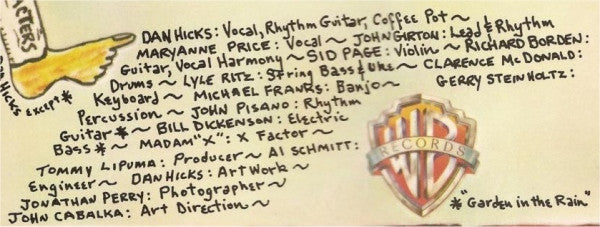 DAN HICKS: Vocal, Rhythm Guitar, Coffee Pot ~
MARYANNE PRICE: Vocal ~ JOHN GIRTON: Lead & Rhythm
Guitar, Vocal Harmony ~ SID PAGE: Violin ~ RICHARD BORDEN:
Drums ~ LYLE RITZ: String Bass & Uke ~ CLARENCE McDONALD:
Keyboard ~ MICHAEL FRANKS: Banjo ~ GERRY STEINHOLTZ:
Percussion ~ JOHN PISANO: Rhythm
Guitar * ~ BILL DICKENSON: Electric
Bass * ~ MADAM "X": X Factor ~
TOMMY LIPUMA: Producer ~ Al SCHMITT:
Engineer ~ DAN HICKS: Art Work ~
JONATHAN PERRY: Photographer ~
JOHN CABALKA: Art Direction ~
WB
RECORDS
* "Garden in the Rain"
DAN HICKS EXCEPT *